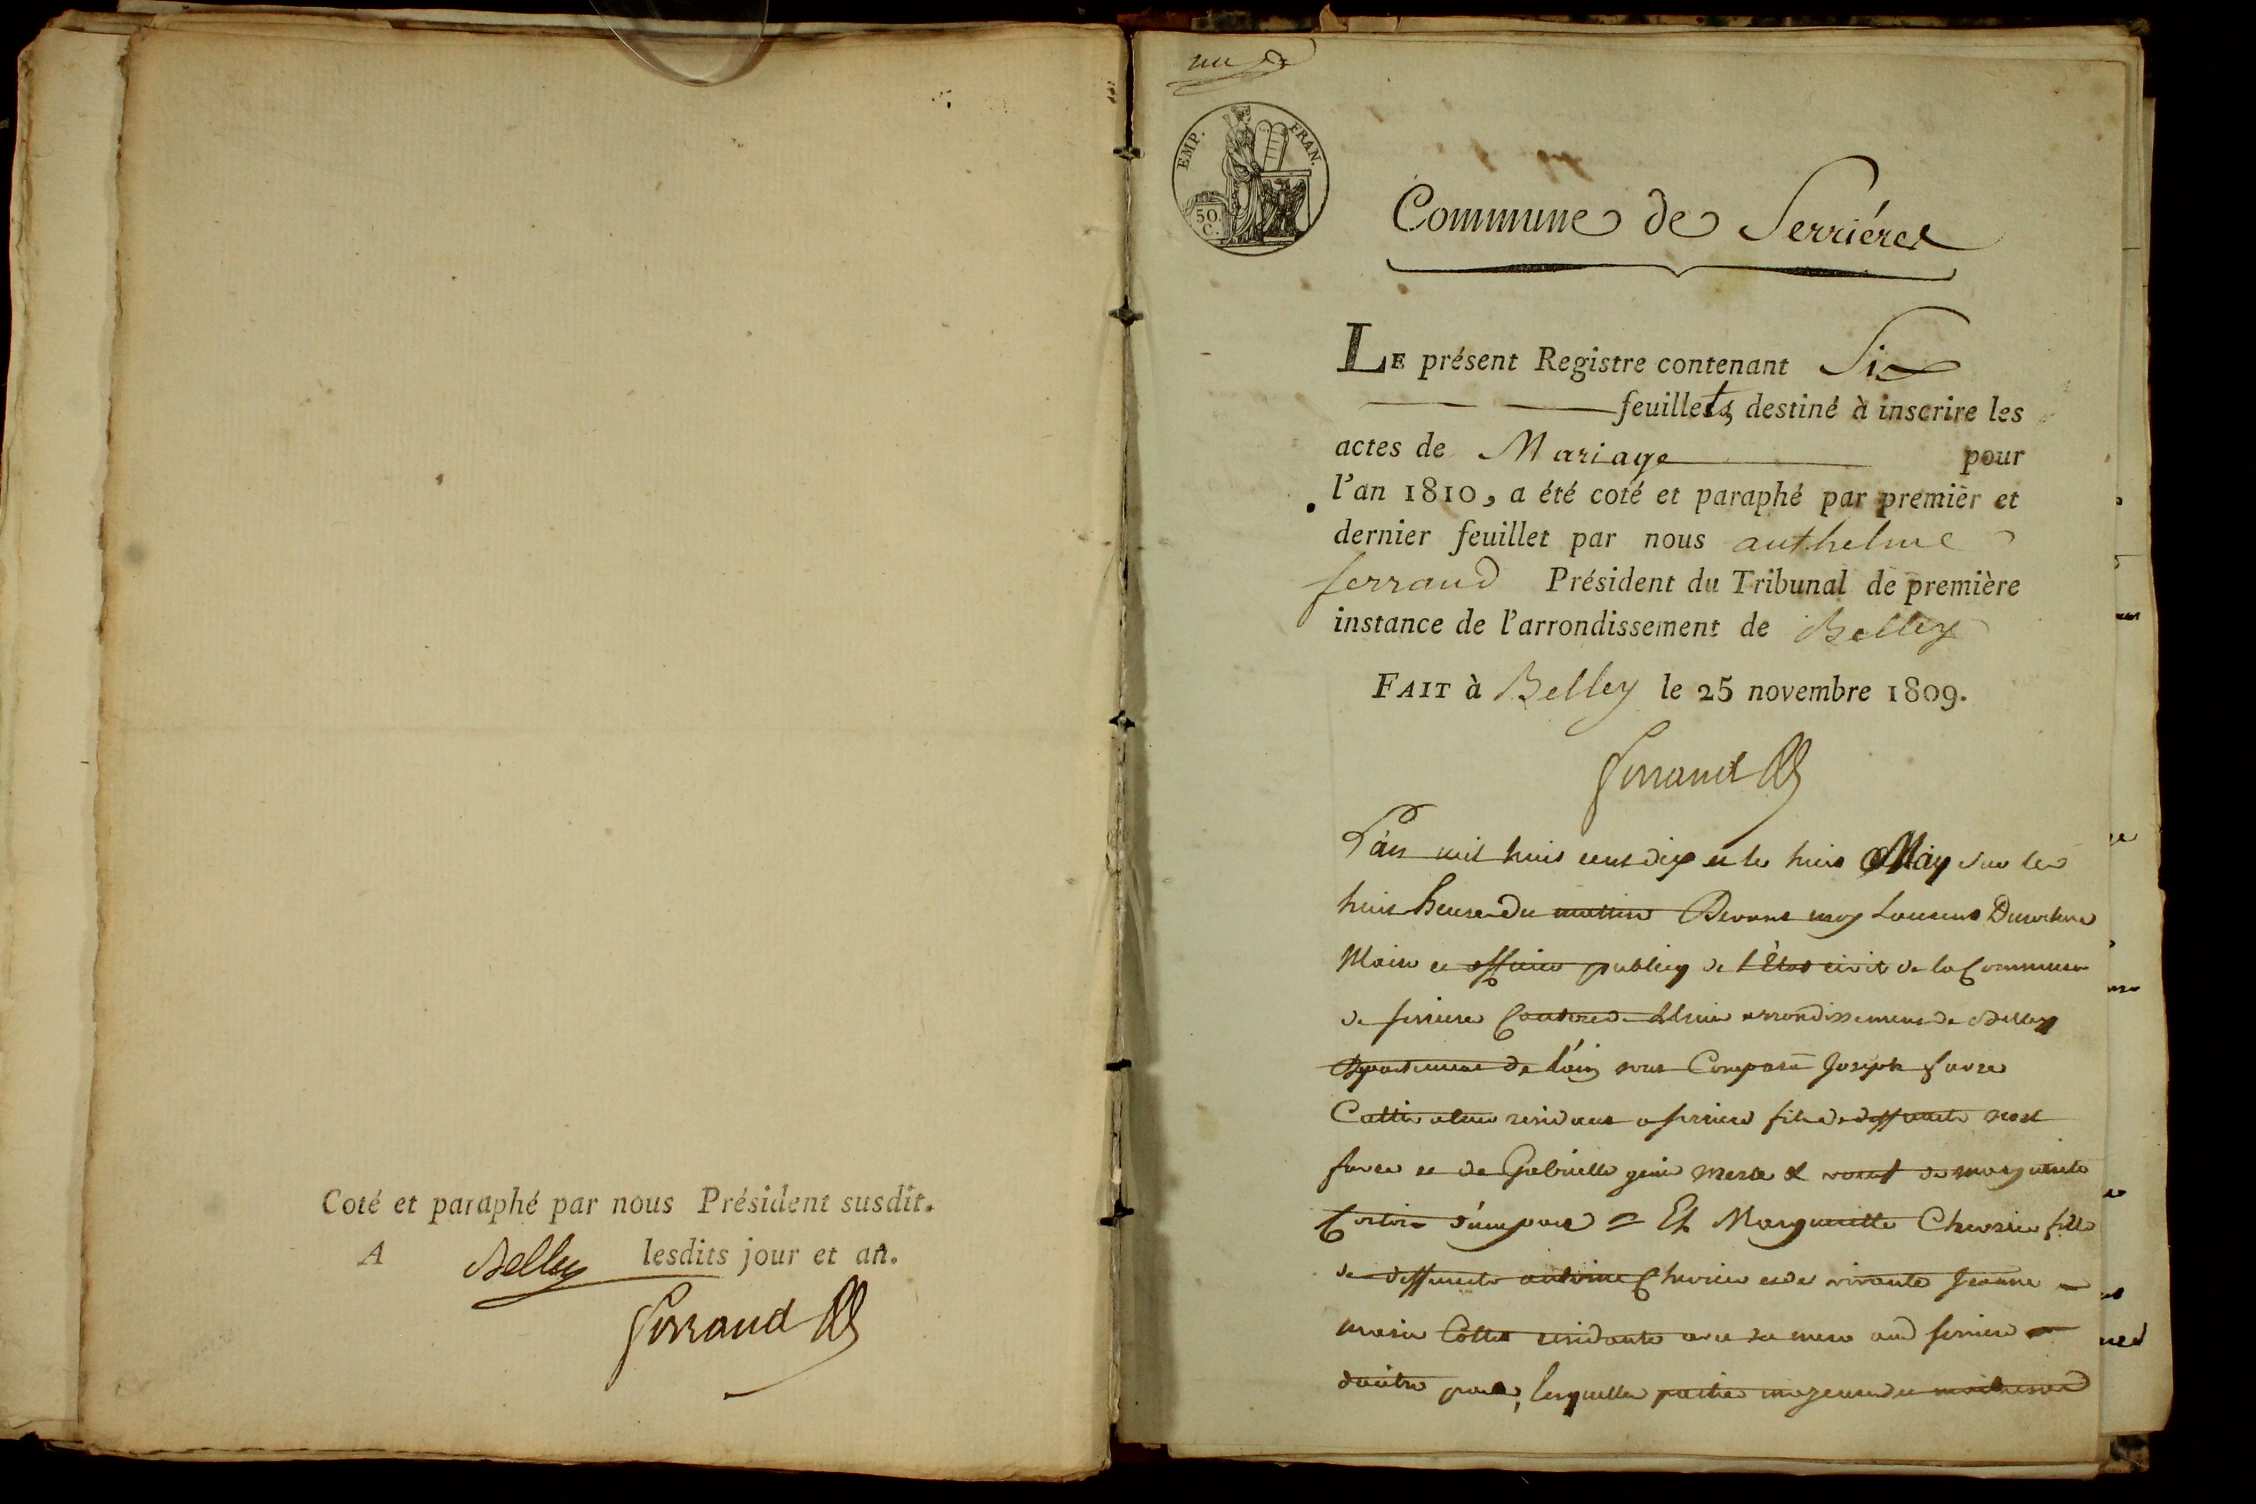 Coté et paraphé par nous Président susdit.
A Belley lesdits jour et an.
Ferrand
EMP. FRAN.
50.
C.
Commune de Serriéres
LE présent Registre contenant Six
feuillets destiné à inscrire les
actes de Mariage pour
l'an 1810, a été coté et paraphé par premier et
dernier feuillet par nous anthelme
ferrand Président du Tribunal de première
instance de l'arrondissement de Belley
FAIT à Belley le 25 novembre 1809.
Ferrand
L'an mil huit cent dix et le huit May sur les
huit heures du mattin Devant moy Laurent
Maire et officier publicq de l'État civil de la Commune
de serriere Canton de arrondissement de Belley
departement de l'ain sont Comparu Joseph favre
Cultivateur residant a serriere fils de deffunt
favre et de Gabrielle mere & de marguerite
d'une part = Et Marguerite fille
de deffunt antoine et de vivante Jeanne
marie residante avec sa mere aud serriere
d'autre part, lesquelles parties